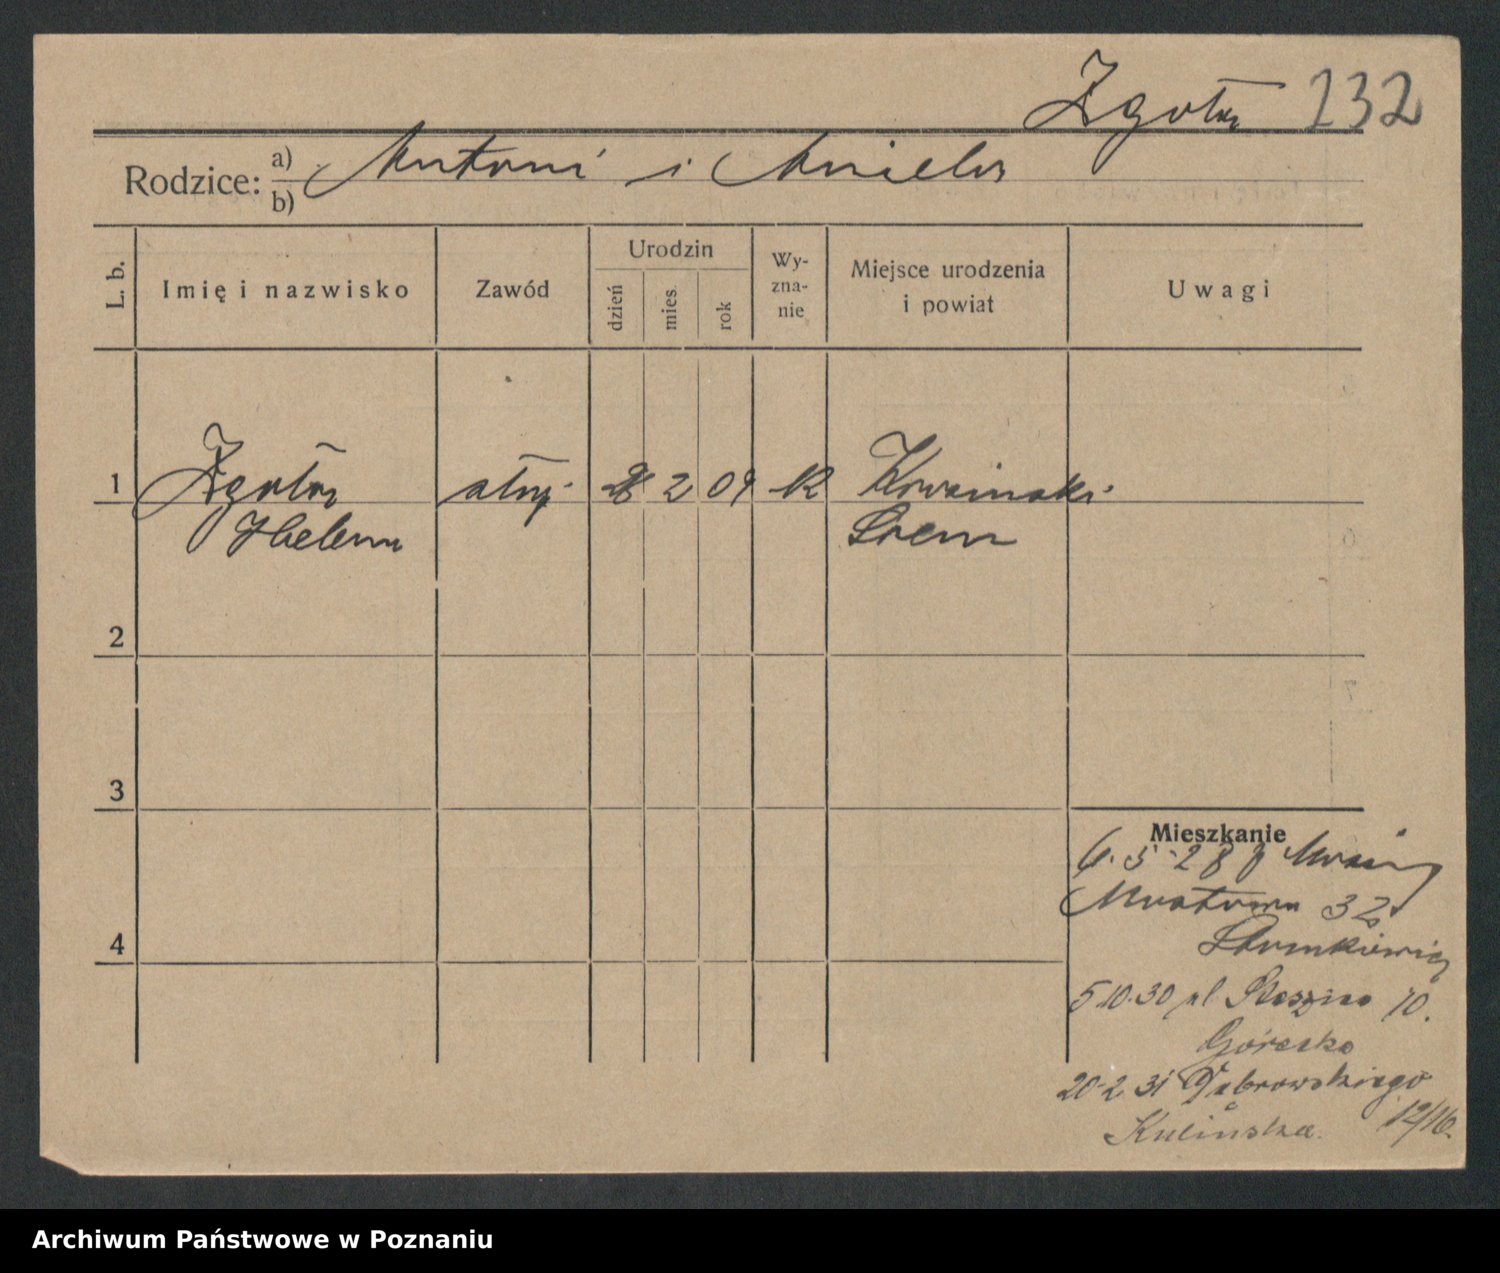 Zgoła 232
Rodzice: a) b) Antoni i Aniela
L. b.
Imię i nazwisko
Zawód
Urodzin
dzień
mies.
rok
Wy-
zna-
nie
Miejsce urodzenia
i powiat
Uwagi
1 służ. 2 09
Helena
Śrem
2
3
4
Mieszkanie
6.5.28
32
5.10.30 pl 10.
Górecka
20.2.31 Dąbrowskiego
12/16.
Kulińska
Archiwum Państwowe w Poznaniu